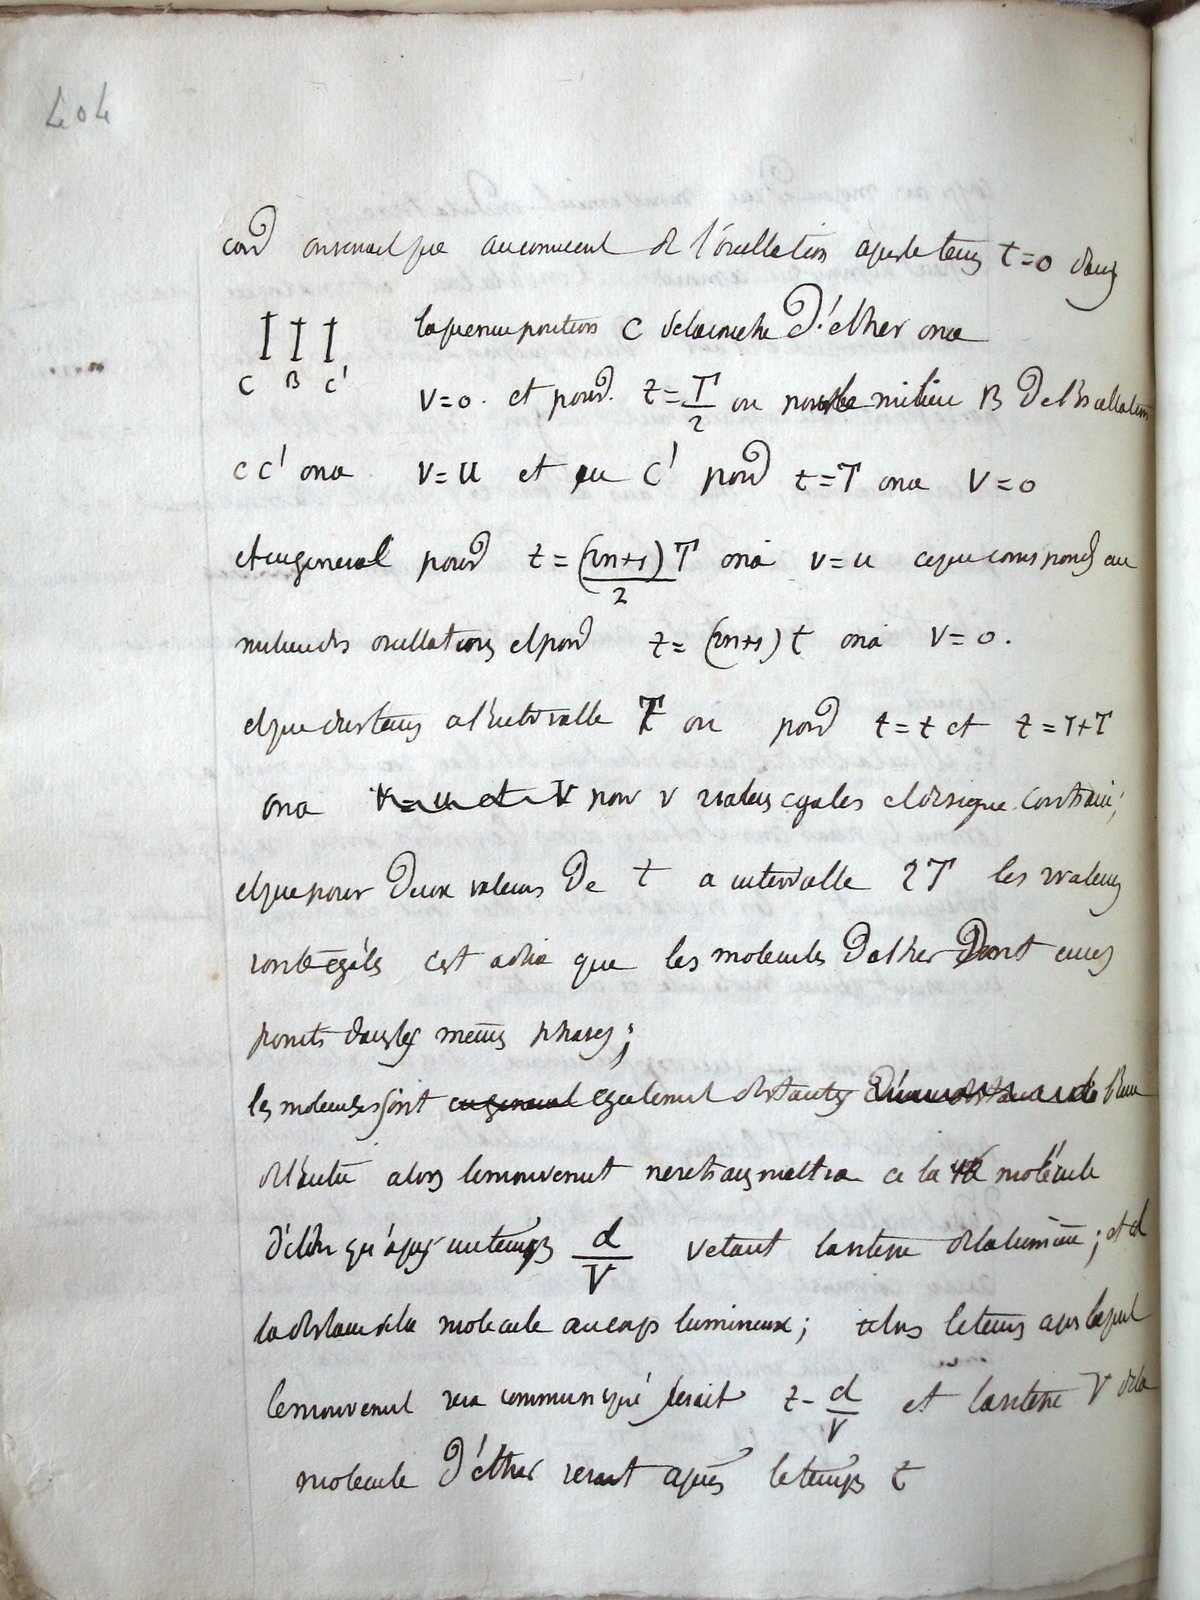 404
on voit que au commencement de l'oscillation après le tems t=0 dans
la première position C de la couche d'éther on a
C B C'
v=0. et pour t=T/2 ou pour le milieu B de l'oscillation
CC' on a v=u et en C' pour t=T on a v=0
et en general pour t=(2n+1)T/2 on a v=u ce qui correspond au
milieu des oscillations et pour t=(2n+1)t on a v=0.
et que des tems a l'intervalle T ou pour t=t et t=T+T
on a v=u et v pour v valeurs egales et de signe contraire;
et que pour deux valeurs de t a intervalle 2T les valeurs
sont égales c'est a dire que les molecules d'ether sont en ces
points dans les mêmes phases;
les molecules sont en general egalement distantes l'une
de l'autre alors le mouvement ne se transmettra a la molécule
d'éther qu'après un temps d/V V etant la vitesse de la lumière; et d
la distance de la molecule au corps lumineux; alors le tems après lequel
le mouvement sera communiqué serait t-d/V et la vitesse V de la
molecule d'éther serait après le temps t